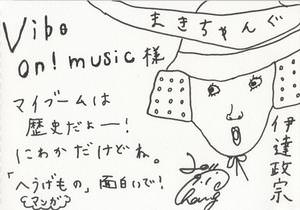 Vibo
on! music 様
マイブームは
歴史だよー!
にわかだけどね。
「へうげもの」面白いで!
マンガ
まきちゃんぐ
伊達政宗
2011
Chang